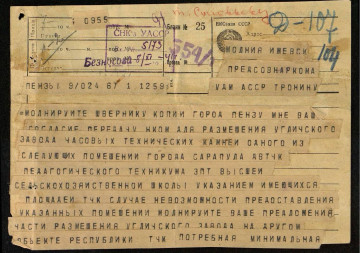 0955
СНК УАСС
5/75
Бланк № 25
554/1
Д-104
104
МОЛНИЯ ИЖЕВСК
ПРЕДСОВНАРКОМА
УАМ АССР ТРОНИНУ
ПЕНЗЫ 9/024 67 1 1259
МОЛНИРУЙТЕ ШВЕРНИКУ КОПИИ ГОРОД ПЕНЗУ МНЕ ВАШ
СОГЛАСИЕ ПЕРЕДАЧУ ДЛЯ РАЗМЕЩЕНИЯ УГЛИЧСКОГО
ЗАВОДА ЧАСОВЫХ ТЕХНИЧЕСКИХ КАМНЕЙ ОДНОГО ИЗ
СЛЕДУЩИХ ПОМЕЩЕНИИ ГОРОДА САРАПУЛА
ПЕДАГОГИЧЕСКОГО ТЕХНИКУМА ЗПТ ВЫСШЕЙ
СЕЛЬСКОХОЗЯЙСТВЕННОЙ ШКОЛЫ УКАЗАНИЕМ ИМЕЮЩИХСЯ
ПЛОЩАДЕЙ ТЧК СЛУЧАЕ НЕВОЗМОЖНОСТИ ПРЕДОСТАВЛЕНИЯ
УКАЗАННЫХ ПОМЕЩЕНИИ МОЛНИРУЙТЕ ВАШЕ ПРЕДЛОЖЕНИЕ
ЧАСТИ РАЗМЕЩЕНИЯ УГЛИЧСКОГО ЗАВОДА НА ДРУГОМ
ОБЪЕКТЕ РЕСПУБЛИКИ ТЧК ПОТРЕБНАЯ МИНИМАЛЬНАЯ